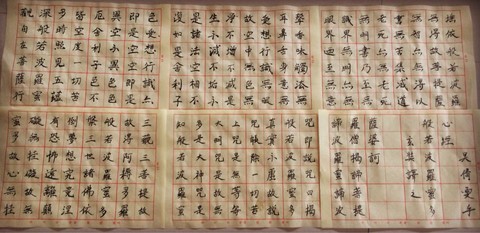 觀自在菩薩行
深般若波羅蜜
多時照見五蘊
皆空度一切苦
厄舍利子色不
異空空不異色
即是空空即是
色受想行識亦
復如是舍利子
是諸法空相不
生不滅不垢不
淨不增不減是
故空中無色無
受想行識無眼
耳鼻舌身意無
聲香味觸法無
眼界乃至無意
識界無無明亦
無無明盡乃至
無老死亦無老
死盡無苦集滅道
無智亦無得以
無所得故菩提薩
埵依般若波羅
蜜多故心無罣
礙無罣礙故無
有恐怖遠離顛
倒夢想究竟涅
槃三世諸佛依
般若波羅蜜多
故得阿耨多羅
三藐三菩提故
知般若波羅蜜
多是大神咒是
大明咒是無上
咒是無等等
咒能除一切苦
真實不虛故說
般若波羅蜜多
咒即說咒曰揭
諦揭諦波羅揭
諦波羅僧揭諦菩提
薩婆訶
般若波羅蜜多
心經
玄奘譯之